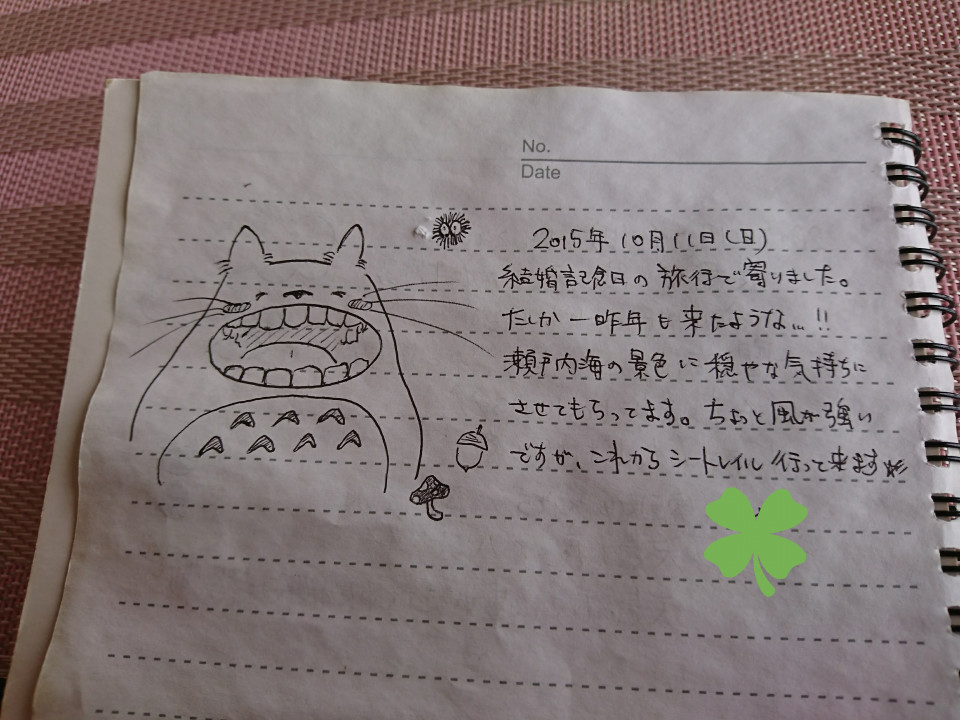 No.
Date
2015年10月11日(日)
結婚記念日の旅行で寄りました。
たしか一昨年も来たような…!!
瀬戸内海の景色に穏やな気持ちに
させてもらってます。ちょっと風が強い
ですが、これからシートレイル行って来ます